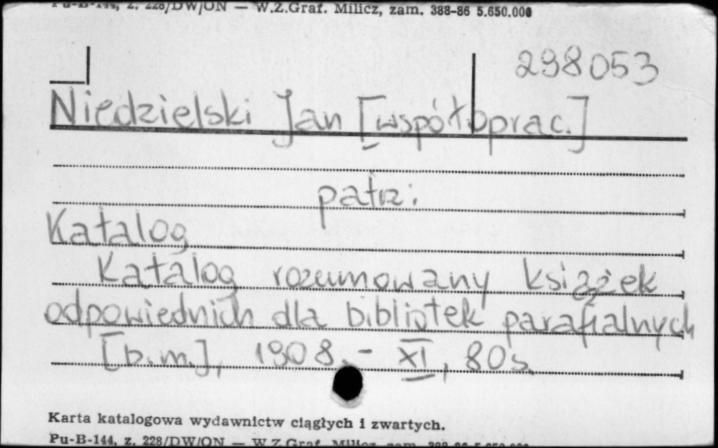 Pu-B-144, z. 228/DW/ON — W.Z.Graf. Milicz, zam. 388-86 5.650.000
298053
Niedzielski Jan [współoprac.]
patrz:
Katalog
Katalog rozumowany książek
odpowiednich dla bibliotek parafialnych
[b.m.], 1908. - XI, 80 s.
Karta katalogowa wydawnictw ciągłych i zwartych.
Pu-B-144, z. 228/DW/ON — W.Z.Graf. Milicz, zam. 388-86 5.650.000